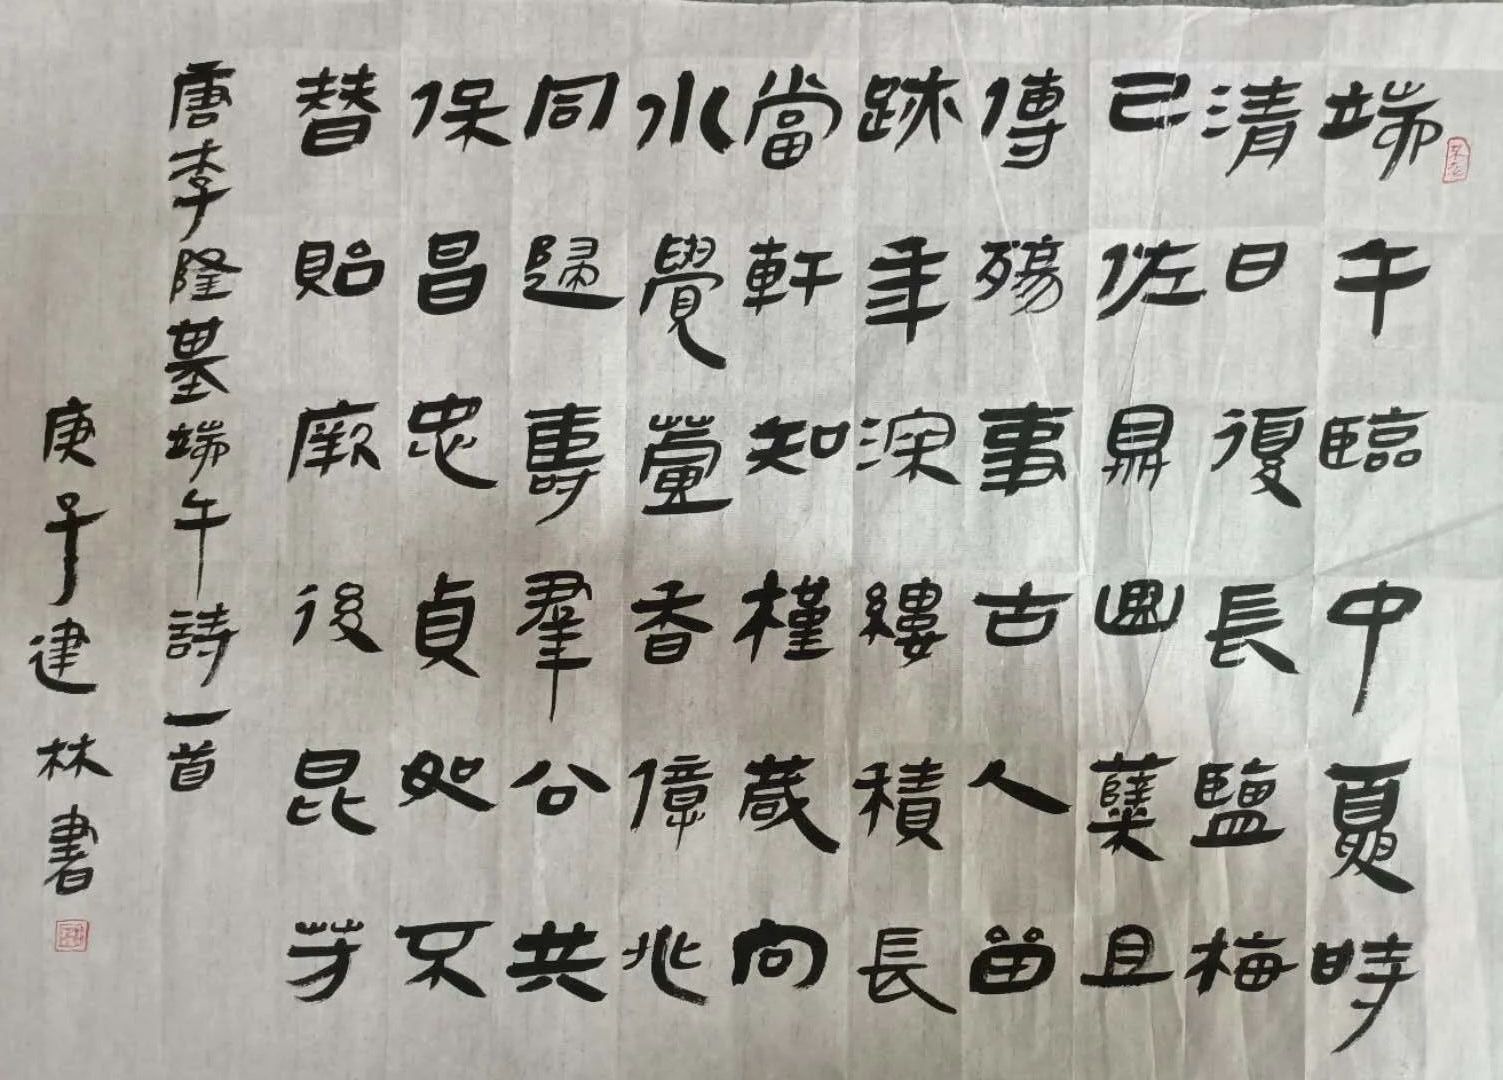 端午臨中夏時
清日復長鹽梅
已佐鼎曲蘖且
傳殤事古人留
跡年深縷積長
當軒知槿茂向
水覺蘆香億兆
同歸壽羣公共
保昌忠貞如不
替貽厥後昆芳
唐李隆基端午詩一首
庚子建林書